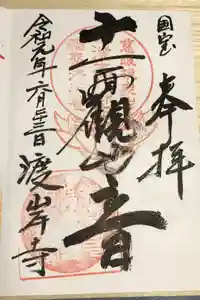 国宝
奉拝
十一面観音
令和元年六月二十三日
渡岸寺